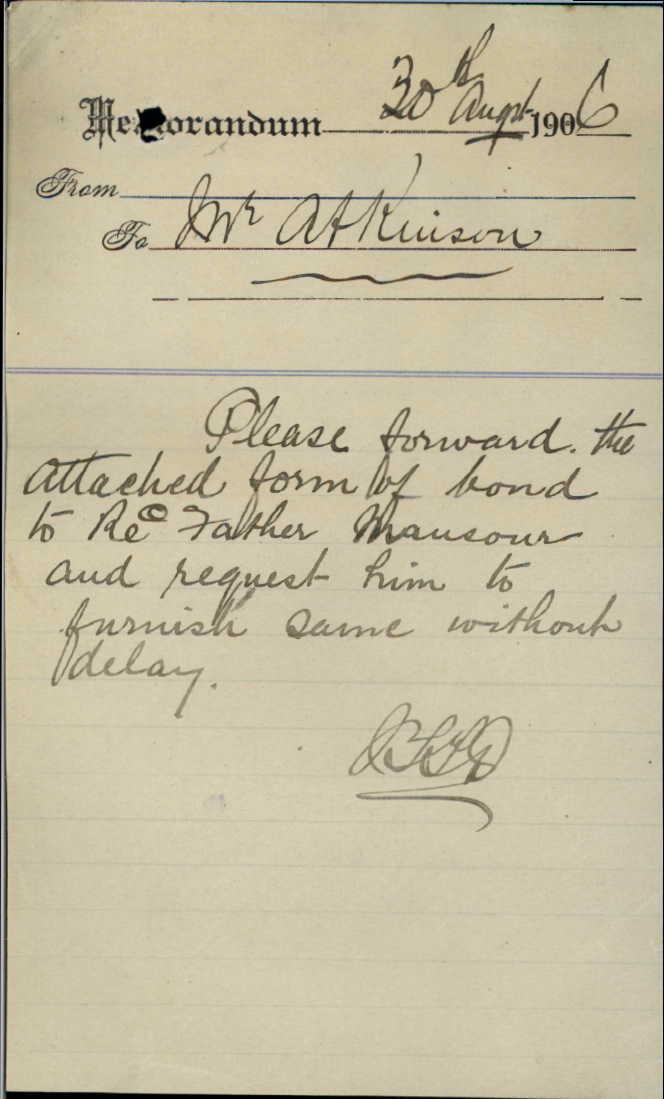 Memorandum 30th Augst 1906
From
To Mr Atkinson
Please forward the
attached form of bond
to Red Father Mansour
and request him to
furnish same without
delay.